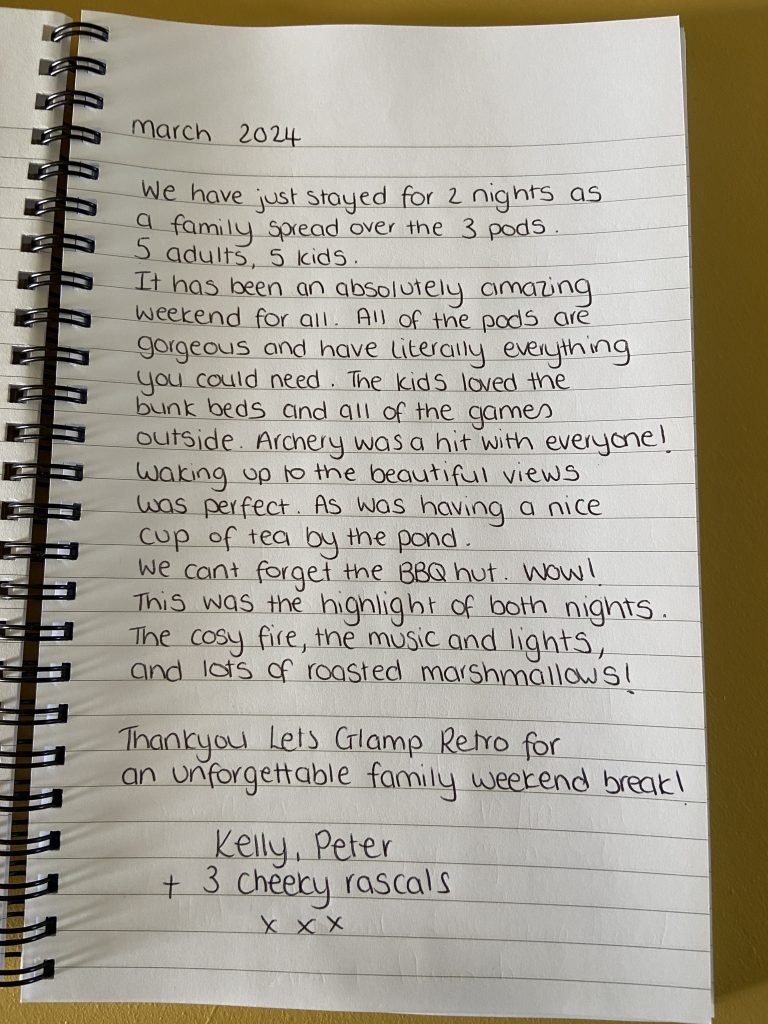 March 2024
We have just stayed for 2 nights as
a family spread over the 3 pods.
5 adults, 5 kids.
It has been an absolutely amazing
weekend for all. All of the pods are
gorgeous and have literally everything
you could need. The kids loved the
bunk beds and all of the games
outside. Archery was a hit with everyone!
Waking up to the beautiful views
was perfect. As was having a nice
cup of tea by the pond.
We cant forget the BBQ hut. Wow!
This was the highlight of both nights.
The cosy fire, the music and lights,
and lots of roasted marshmallows!
Thankyou Lets Glamp Retro for
an unforgettable family weekend break!
Kelly, Peter
+ 3 cheeky rascals
x x x